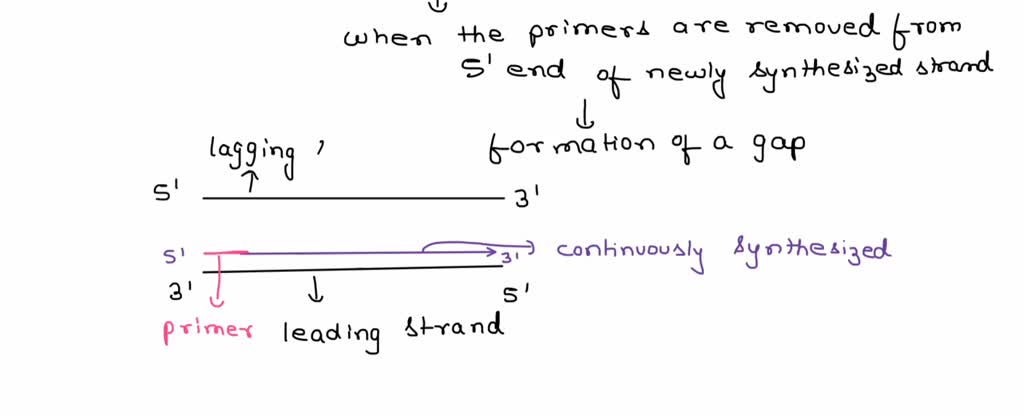 when the primers are removed from
5' end of newly synthesized strand
formation of a gap
lagging ,
5' 3'
5' 3' continuously synthesized
3' 5'
primer leading strand